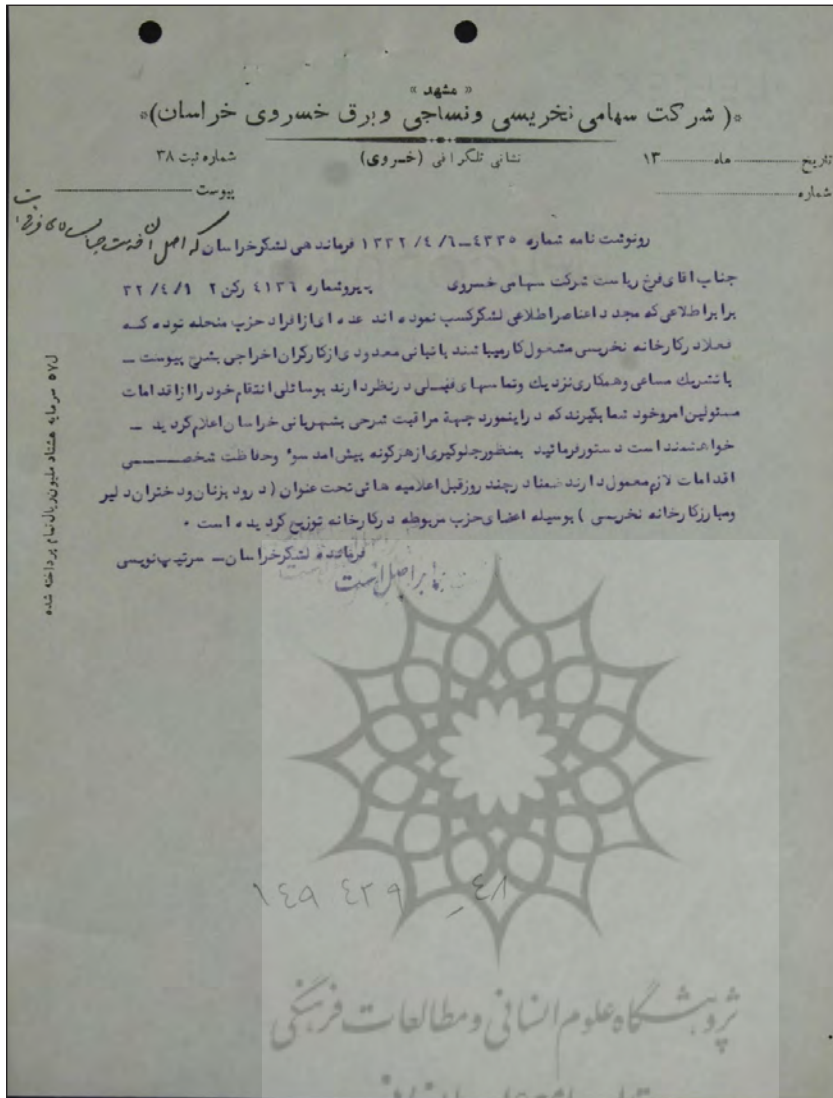 « مشهد »
(شرکت سهامی نخریسی ونساجی وبرق خسروی خراسان)
تاریخ ماه ۱۳
نشانی تلگرافی (خسروی)
شماره ثبت ۳۸
شماره
پیوست
رونوشت نامه شماره ۴۳۳۵-۱۳۳۲/۴/۶ فرماندهی لشکرخراسان که اصل آن
جناب اقای فرخ ریاست شرکت سهامی خسروی پیروشماره ۴۱۳۶ رکن ۲ ۳۲/۴/۱
برابراطلاعی که مجددا عناصراطلاعی لشکرکسب نموده اند عده ای ازافراد حزب منحله توده کـه
فعلادرکارخانه نخریسی مشغول کارمیباشند باتبانی معدودی ازکارگران اخراجی بشرح پیوست ـ
باتشریک مساعی وهمکاری نزدیک وتماسهای درنظردارند بوسائلی انتقام خود راازاقدامات
مسئولین امروخود شما بگیرند که دراینمورد جهة مراقبت شرحی بشهربانی خراسان اعلام گردید ـ
خواهشمند است دستورفرمائید بمنظورجلوگیری ازهرگونه پیش امد سوء وحفاظت شخصـــی
اقدامات لازم معمول دارند ضمنا درچند روزقبل اعلامیه هائی تحت عنوان (درود بزنان ودختران دلیر
ومبارزکارخانه نخریسی) بوسیله اعضای حزب مربوطه درکارخانه توزیع گردیده است .
فرمانده لشکرخراسان ـ سرتیپ نویسی
برابر اصل است
ریال تمام پرداخته شده سرمایه هشتاد ملیون
۱۴۹ ۴۲۹ ـ ۴۸
پژوهشگاه علوم انسانی ومطالعات فرهنگی